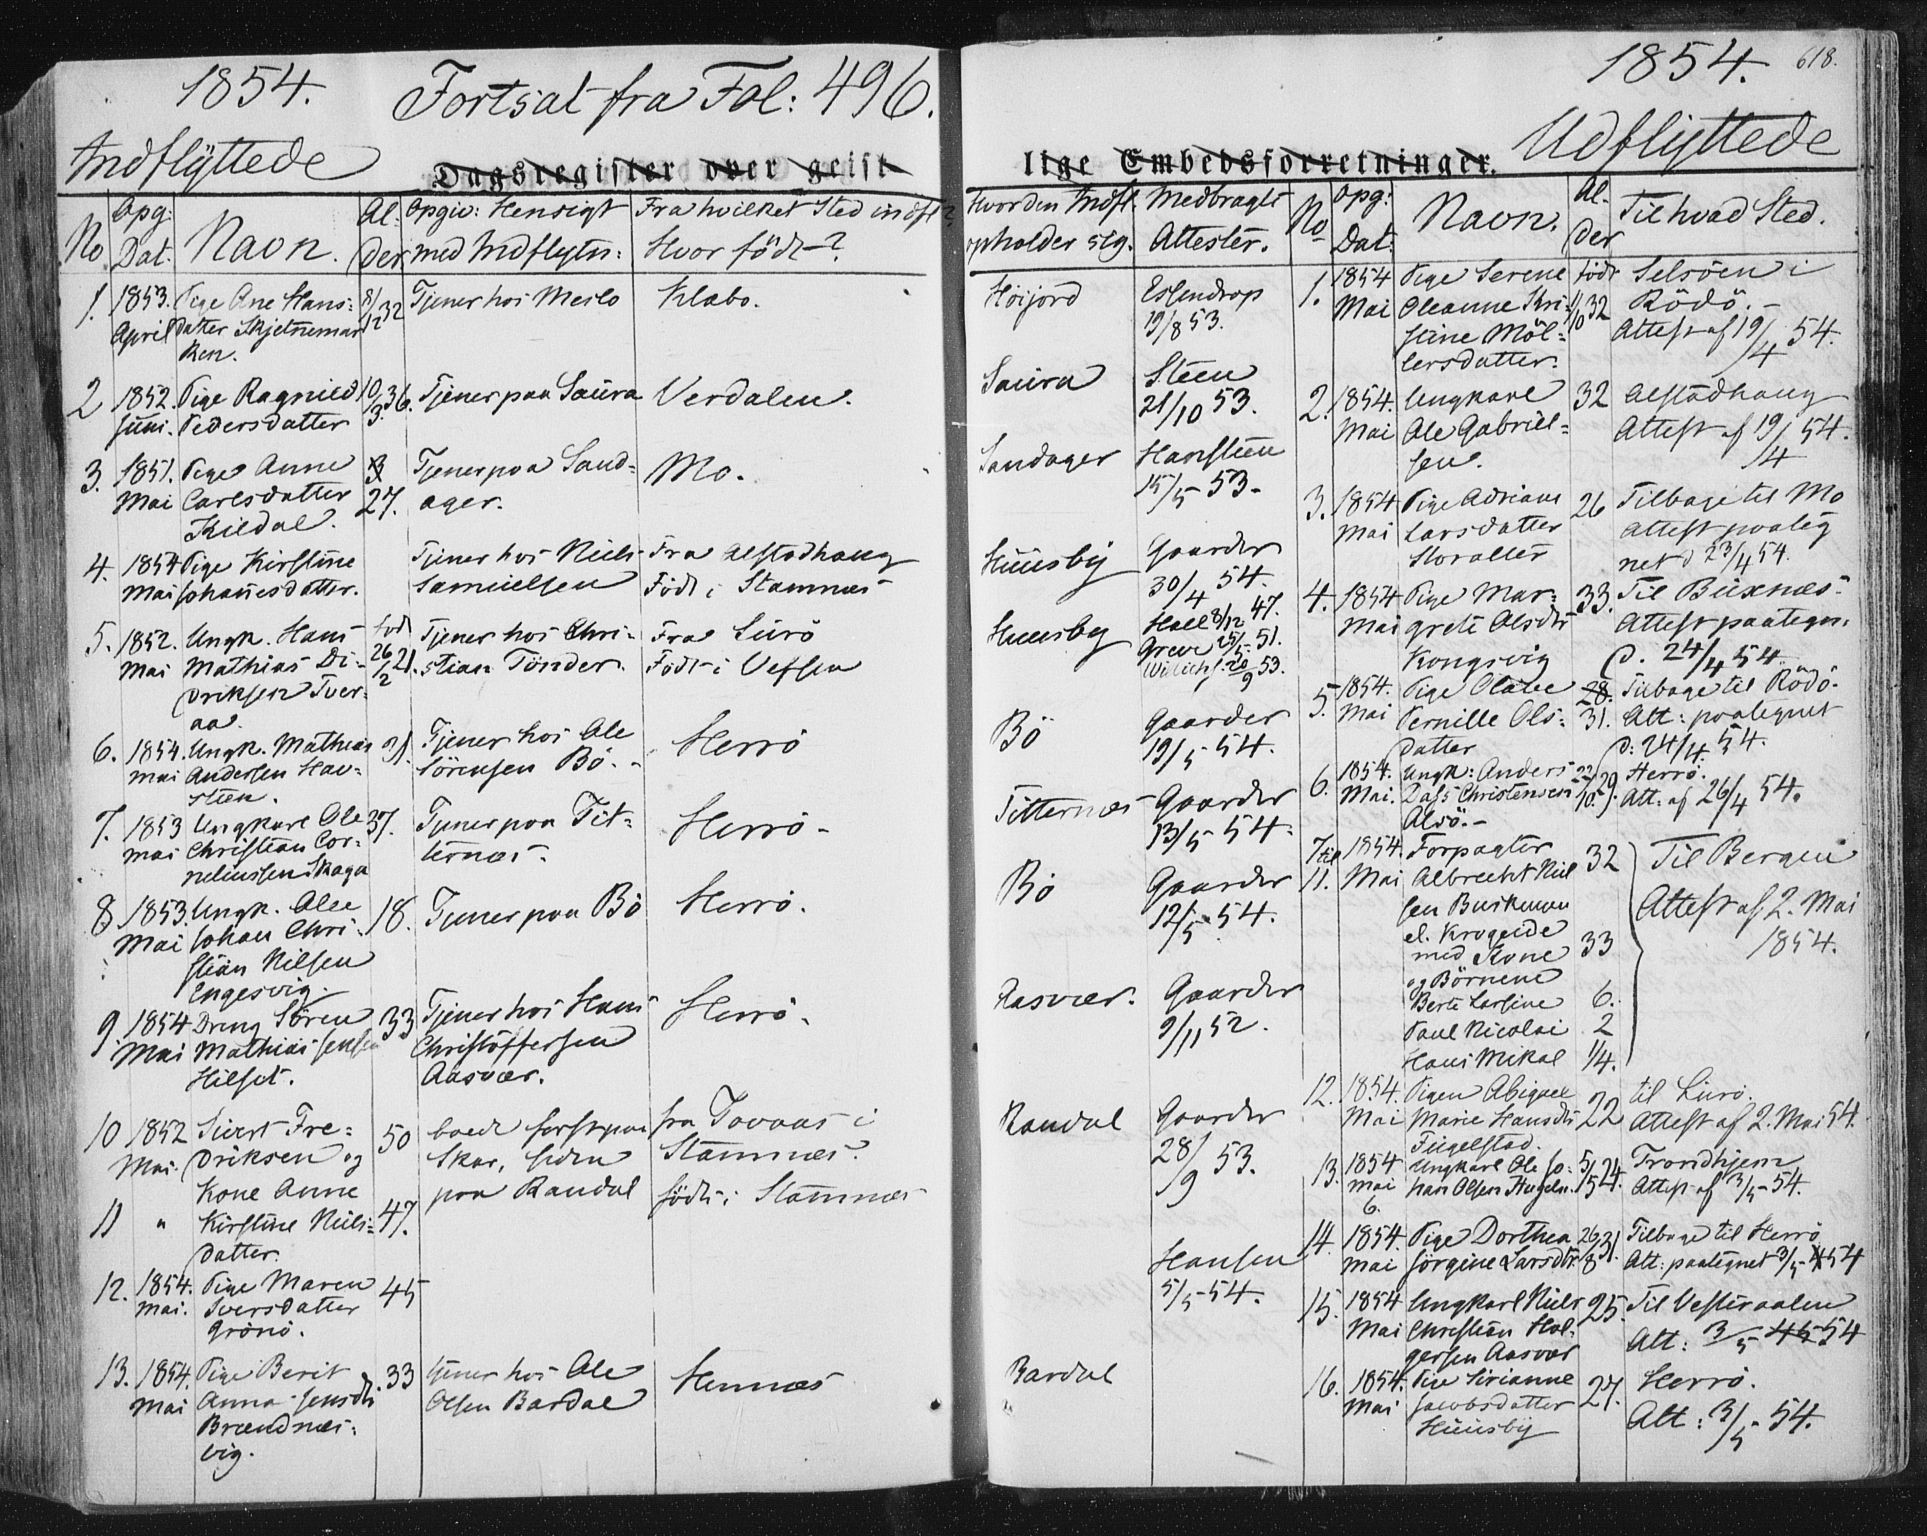 1854. Fortsat fra Fol: 496.
Indflÿttede
Dagsregister over geist-
No
Opg: Dat:
Navn.
Alder
Opgiv: Hensigt med Indflytn:
Fra hvilket Sted indfl? Hvor födt?
1. 1853. April
Pige Ane Hans-
datter Skjetnemar
ken.
8/12 32
Tjener hos Meslo
Klæbo.
2 1852. Juni.
Pige Ragnild
Pedersdatter
10/3 36.
Tjener paa Saura
Verdalen.
3. 1851. Mai
Pige Anne
Carlsdatter
Kildal.
27.
Tjener paa Sand-
ager.
Mo.
4. 1854 Mai
Pige Kirstine
Johanesdatter.
Tjener hos Niels
Samuelsen
Fra Alstadhaug
Födt i Stamnes
5. 1852. Mai
Ungk. Hans
Mathias Di-
driksen Tver-
aa.
född 26/12 21.
Tjener hos Chri-
stian Tönder.
Fra Lurö
Födt i Vefsen
6. 1854. Mai
Ungk. Mathias
Andersen Hav-
steen.
21.
Tjener hos Ole
Sörensen Bö.
Herrö
7. 1853 Mai
Ungkarl Ole
Christian Cor-
neliussen Skaga
37.
Tjener paa Tit-
ternæs.
Herrö
8. 1853. Mai
Ungk. Olee
Johan Chri-
stian Nilsen
Engesvig.
18.
Tjener paa Bö
Herrö.
9. 1854 Mai
Dreng Sören
Mathias Jensen
Hilset.
33
Tjener hos Hans
Christoffersen
Aasvær.
Herrö.
10 1852 Mai.
Sivert Fre-
driksen og
Kone Anne
50
boede först paa
Skar, siden
paa Randal
fra Tovaas i
Stamnæs.
födt i Stamnæs
11 "
Kirstine Niels-
datter.
47.
12. 1854. Mai.
Pige Maren
Iversdatter
Grönö.
45
13. 1854. Mai
Pige Berit
Anna Jensdtr
Brændnæs-
vig.
33
tjener hos Ole
Olsen Bardal
Hemnæs
1854. 618.
Udflÿttede
lige Embedsforretninger.
Hvor den Indfl. opholder sig.
Medbragte Attester.
No
Opg: Dat:
Navn.
Alder
Til hvad Sted.
Höijord
Essendrop
19/8 53.
Saura
Steen
21/10 53.
Sandager
Hansteen
15/5 53.
Huusby
Gaarder
30/4 54.
Huusby
Hall 8/12 47.
Greve 25/5 51.
20/9 53.
Bö
Gaarder
19/5 54.
Titternæs
Gaarder
13/5 54.
Bö
Gaarder
12/5 54.
Aasvær.
Gaarder
9/11 52.
Randal
Gaarder
28/9 53.
Hansen
5/5 54.
Bardal
1. 1854 Mai
Pige Serene
Oleanne Kri-
stine Möl-
lersdatter.
födt 1/10 32
Selsöen i
Rödö.
Attest af 19/4 54.
2. 1854. Mai
Ungkarl
Ole Gabriel-
sen.
32
Alstadhaug
Attest af 19/4 54.
3. 1854 Mai
Pige Adriane
Larsdatter
Storalter
26
Tilbage til Mo
attest paateg
net d 23/4 54.
4. 1854 Mai
Pige Mar-
grete Olsdtr
Kongsvig
33.
Til Buxnæs.
Attest paategn.
d. 24/4 54.
5. 1854. Mai
Pige Olave
Pernille Ols-
datter
28. 31.
Tilbage til Rödö.
Att: paategnet
d: 24/4 54.
6. 1854. Mai.
Ungk: Anders
Dass Christensen
Alsö.
22/10 29.
Herrö.
Att. af 26/4 54.
7 til 11. 1854. Mai
Forpagter
Albrecht Niel
sen Buskman
el. Krogeide
med Kone
og Börnene
Berte Larsine
Paul Nicolai
Hans Mikal
32
33
6.
2
1/4.
Til Bergen
Attest af 2. Mai
1854.
12. 1854. Mai
Pigen Abiguel
Marie Hansdtr
Fugelstad.
22
til Lurö.
Attest af 2. Mai 54.
13. 1854 Mai 6.
Ungkarl Ole Jo-
han Olsen
5/5 24.
Trondhjem
Attest af 3/5 54.
14. 1854. Mai
Pige Dorthea
Jörgine Larsdtr.
26/8 31.
Tilbage til Herrö
Att: paategnet 3/5 54
15. 1854 Mai
Ungkarl Niels
Christian Hol-
gersen Aasvær
25.
Til Vesteraalen
Att: 3/5 54
16. 1854. Mai
Pige Sirianne
Jacobsdatter
Huusby
27.
Herrö.
Att: 3/5 54.